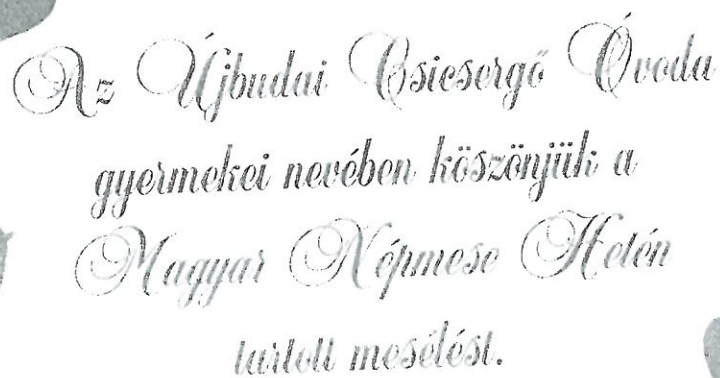 Az Újbudai Csicsergő Óvoda
gyermekei nevében köszönjük a
Magyar Népmese Hetén
tartott mesélést.